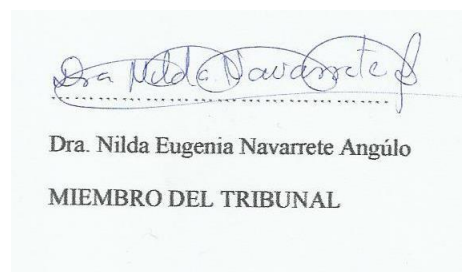 Dra Nilda Navarrete A
Dra. Nilda Eugenia Navarrete Angúlo
MIEMBRO DEL TRIBUNAL